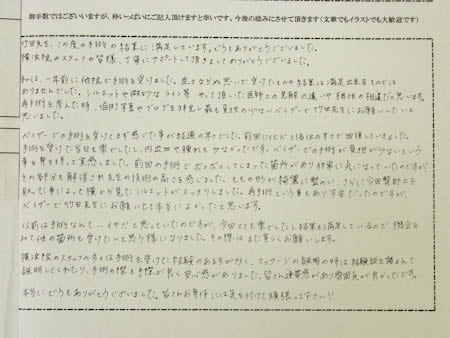 御手数ではございますが、枠いっぱいにご記入頂けますと幸いです。今後の励みにさせて頂きます(文章でもイラストでも大歓迎です)
竹田先生、この度の手術の結果に満足しています。どうもありがとうございました。
横浜院のスタッフの皆様、丁寧にサポートして頂きましてありがとうございました。
私は、一年前に他院で手術を受けました。痛さなど思いで受けたものの結果は満足出来るものでは
ありませんでした。シルエットや微妙なライン等、やって頂いた医師との見解の違いや相性の相違だと思います。
再手術を考えた時、症例写真やブログを拝見し最も負担の少ないベイザーで竹田先生にお願いしたいと
思いました。
ベイザーでの手術を受けてまず感じた事が経過の早さでした。前回にくらべ3倍ほの早さで回復していきました。
手術を受けた当日も楽でしたし、内出血や腫れも少なかったです。ベイザーでの手術が負担が少ないという
事も身を持って実感しました。前回の手術でボコボコしてしまった箇所があり非常に気になっていたのですが
その部分も解消され先生の技術の高さを感じました。ももの形が綺麗に整のい、さらに今回臀部上を
取った事によって横から見たシルエットがスッキリしました。再手術という事もあり不安だったのですが、
ベイザーで竹田先生にお願いして本当によかったと思います。
以前は手術なんて一イヤ!!と思っていたのですが、今回とても楽でしたし結果も満足しているので機会を
みて他の箇所も受けたいと思う様になりました。その際はまた宜しくお願いします。
横浜院のスタッフの方々は手術を受けた経験のある方が多く、マッサージの説明の時は経験談を踏まえて
説明してくれたり、手術の際も手際が良く安心感がありました。皆さん連帯感があり雰囲気が良かったです。
本当にどうもありがとうございました。皆さんお身体には気を付けて頑張って下さい!!